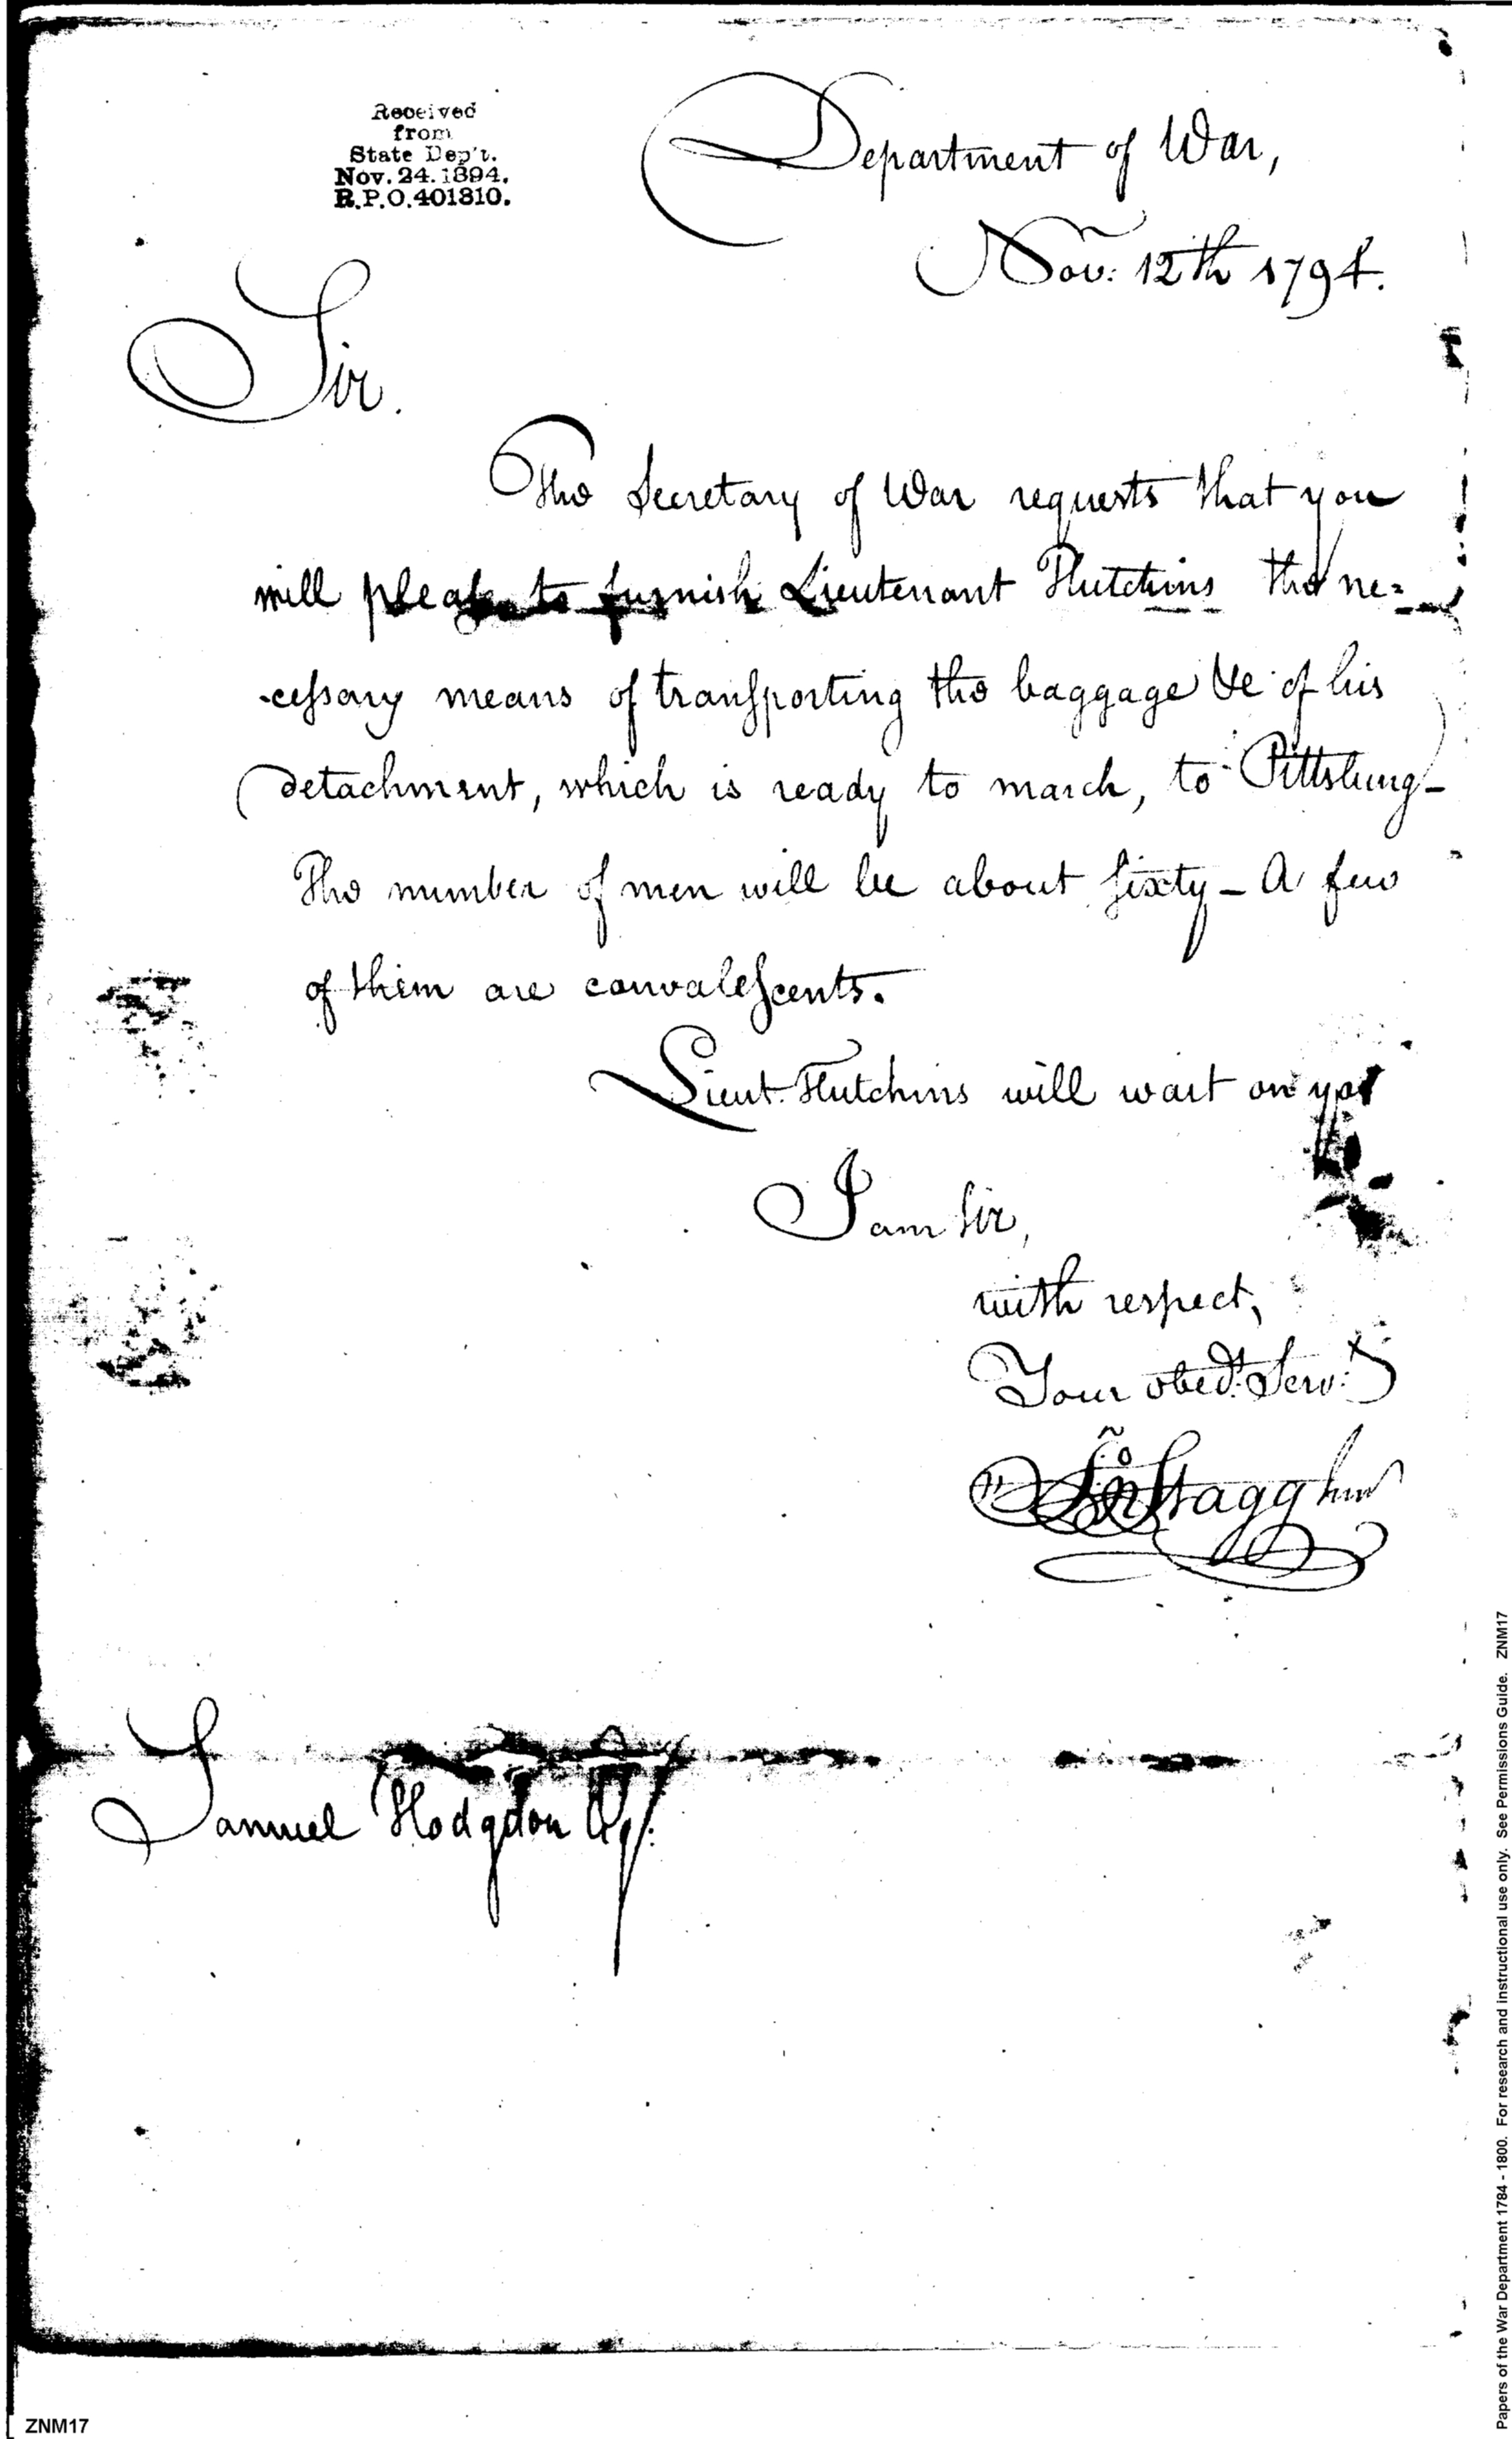 Received
from
State Dep't.
Nov. 24. 1894.
R.P.O. 401310.
Department of War,
Nov: 12th 1794.
Sir.
The Secretary of War requests that you
will please to furnish Lieutenant Hutchins the ne=
-cessary means of transporting the baggage &c of his
detachment, which is ready to march, to Pittsburg-
The number of men will be about sixty - A few
of them are convalescents.
Lieut. Hutchins will wait on you
I am Sir,
with respect,
Your obedt: Servt:
Jno Stagg junr
Samuel Hodgdon Esq:
Papers of the War Department 1784 - 1800. For research and instructional use only. See Permissions Guide. ZNM17
ZNM17